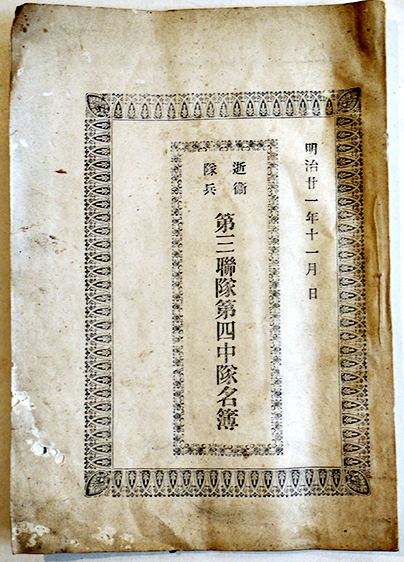 明治廿一年十一月 日
逝衛
隊兵
第三聯隊第四中隊名簿